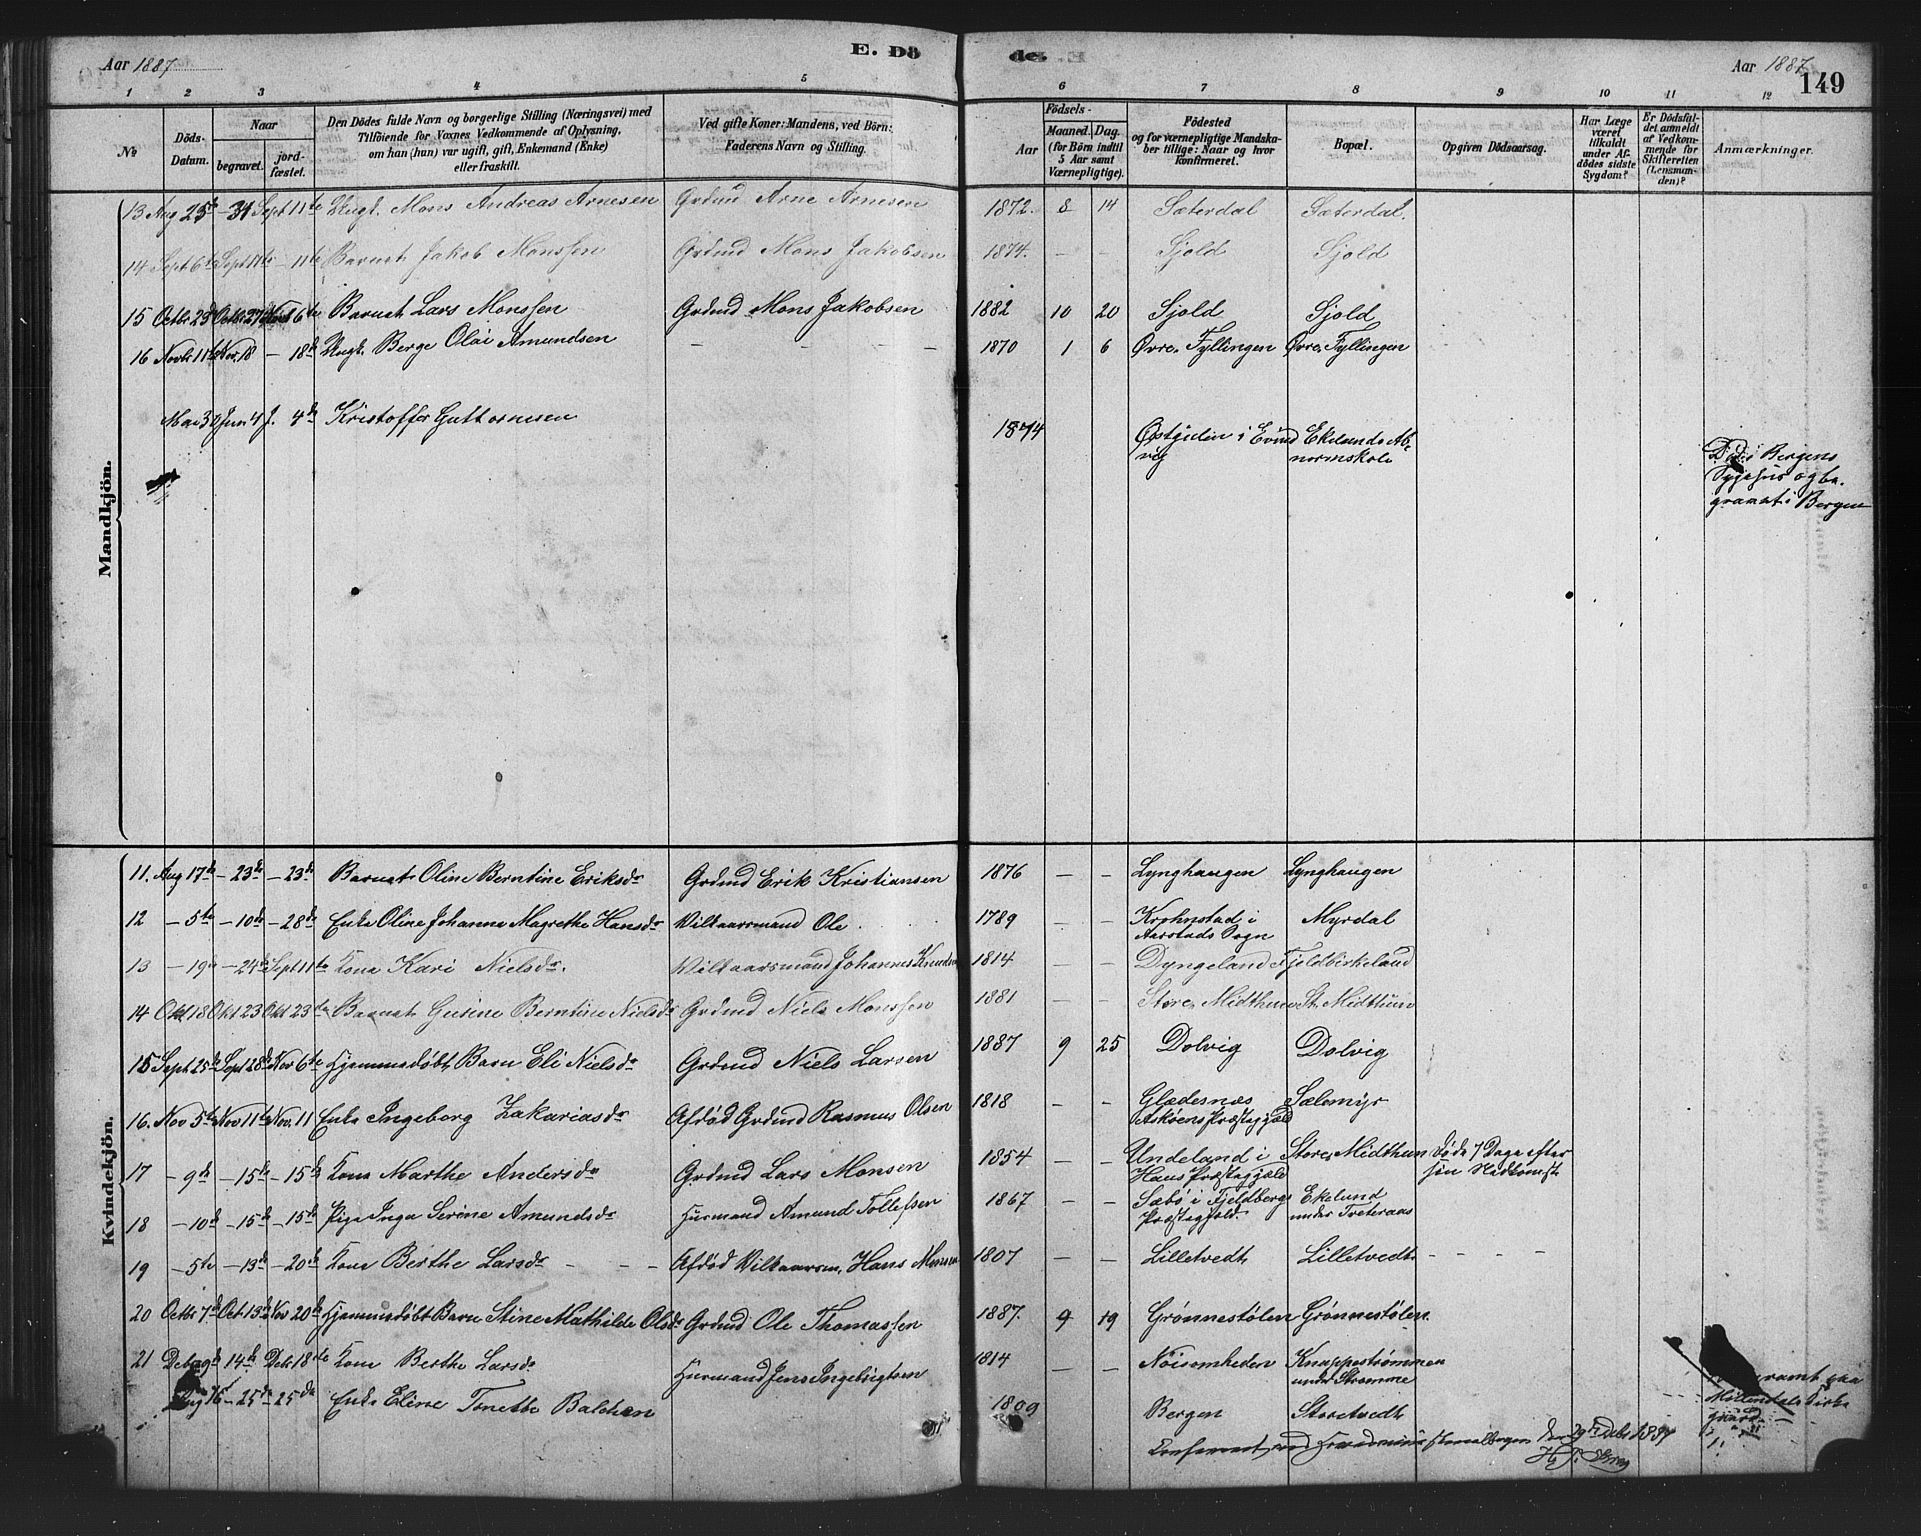 Aar 1887
E. Dö
de.
Aar 1887
149
1 2 3 4 5 6 7 8 9 10 11 12
No
Döds-Datum.
Naar
begravet.
jord-fæstet.
Den Dödes fulde Navn og borgerlige Stilling (Næringsvei) med
Tilföiende for Voxnes Vedkommende af Oplysning,
om han (hun) var ugift, gift, Enkemand (Enke)
eller fraskilt.
Ved gifte Koner: Mandens, ved Börn:
Faderens Navn og Stilling.
Födsels-
Aar
Maaned. Dag.
(for Börn indtil
5 Aar samt
Værnepligtige).
Födested
og for værnepligtige Mandska-
ber tillige: Naar og hvor
konfirmeret.
Bopæl.
Opgiven Dödsaarsag.
Har Læge
været
tilkaldt
under Af-
dödes sidste
Sygdom?
Er Dödsfal-
det anmeldt
af Vedkom-
mende for
Skifteretten
(Lensman-
den)?
Anmærkninger.
Mandkjön.
13 Aug 25de – 31 Sept 11te Ungk. Mons Andreas Arnesen Grdmd Arne Arnesen 1872. 8 14 Sæterdal Sæterdal.
14 Sept 6te Sept 11te – 11te Barnet Jakob Monssen Grdmd Mons Jakobsen 1874. – – Sjold Sjold
15 Octbr 23de Octbr 27de Novbr 6te Barnet Lars Monssen Grdmd Mons Jakobsen 1882 10 20 Sjold Sjold
16 Novbr 11te Nov. 18 – 18de Ungk. Berge Olai Amundsen – – – – 1870 1 6 Øvre Fyllingen Øvre Fyllingen
Mai 30 Juni 4 J. 4de Kristoffer Guttormsen 1874 Østsiden i Evind
vig Ekelunds Ab-
normskole
Døde i Bergens
Sygehus og be-
gravet i Bergen
Kvindekjön.
11. Aug 17de – 23de – 23de Barnet Oline Berntine Eriksdr Grdmd Erik Kristiansen 1876 – – Lynghaugen Lynghaugen
12 – 5te – 10de – 28de Enke Oline Johanna Magrethe Hansdr Vilkaarsmand Ole 1789 – – Krohnstad i
Aarstads Sogn Myrdal
13 – 19de – 24de Sept 11te Kona Kari Nielsdr. Vilkaarsmand Johannes Knudsen 1814 – – Dyngeland Fjeldbirkeland
14 Okt 18 Okt 23 Okt 23de Barnet Gurine Berntine Nielsdr Grdmd Niels Monssen 1881 – – Store Midthun St. Midthun
15 Sept 25de Sept 28de Nov 6te Hjemmedøbt Barn Eli Nielsdr Grdmd Niels Larsen 1887 9 25 Dolvig Dolvig
16. Nov 5te Nov 11te Nov. 11 Enke Ingeborg Zakariasdr Afdød Grdmd Rasmus Olsen 1818 – – Glædesnæs
Askøens Præstegjæld Sælemyr
17 – 9de – 15de – 15de Kona Marthe Andersdr Grdmd Lars Monsen 1854 – – Undeland i
Haus Præstegjæld Store Midthun Døde 7 Dage efter
sin Nedkomst
18 – 10de – 15de – 15de Pige Inga Serine Amundsdr Husmand Amund Tollefsen 1867 – – Sæbø i Fjeldbergs
Præstegjeld. Ekelund
under Tveteraas
19 – 5te – 13de – 20de Kona Berthe Larsdr – – – Afdød Vilkaarsm. Hans Monsen 1807 – – Lilletvedt Lilletvedt – – – –
20 Octbr 7de Oct. 13de Nov 20de Hjemmedøbt Barn Stine Mathilde Olsdr Grdmd Ole Thomassen 1887. 9 19 Grønnestølen Grønnestølen
21 Debr 9de 14de Debr 18de Kona Berthe Larsdr Husmand Jens Ingebrigtsen 1814 – – Nøisomheden Knappestrømmen
under Strømme
Aug 15 – 25de – 25de Enke Eline Tonette Balchen 1809 Bergen Storetvedt
gravet paa
Møllendals Kirke
gaard
Conferert med den 29de Debr 1887